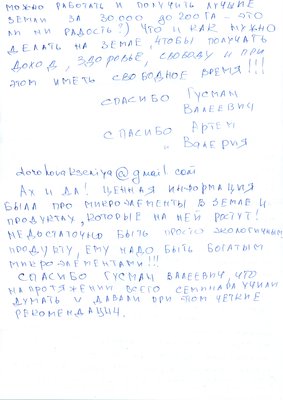 можно работать и получить лучшие
земли за 30.000 до 200 га - это
ли ни радость!) Что и как нужно
делать на земле, чтобы получать
доход, здоровье, свободу и при
этом иметь свободное время!!!
Спасибо Гусман
Валеевич
Спасибо Артем
и Валерия
dorohovakseniya@gmail.com
Ах и да! Ценная информация
была про микроэлементы в земле и
продуктах, которые на ней растут!
Недостаточно быть просто экологичным
продукту, ему надо быть богатым
микроэлементами!!!
Спасибо Гусман Валеевич, что
на протяжении всего семинара учили
думать и давали при этом четкие
рекомендации.